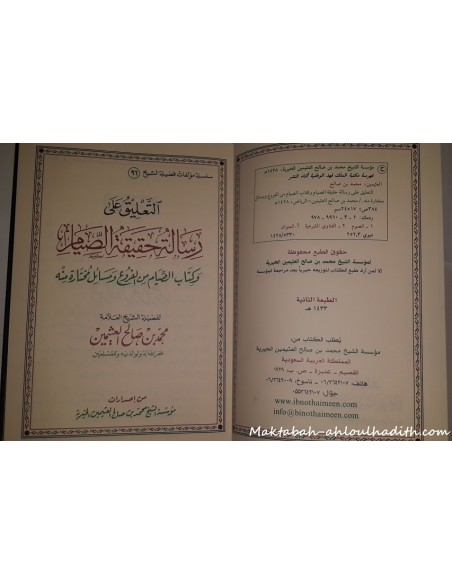 سلسلة مؤلفات فضيلة الشيخ (٩٦)
التعليق على
رسالة حقيقة الصيام
وكتاب الصيام من الفروع ومسائل مختارة منه
لفضيلة الشيخ العلامة
محمد بن صالح العثيمين
غفر الله له ولوالديه وللمسلمين
من إصدارات
مؤسسة الشيخ محمد بن صالح العثيمين الخيرية
ح مؤسسة الشيخ محمد بن صالح العثيمين الخيرية، ١٤٢٨هـ
فهرسة مكتبة الملك فهد الوطنية أثناء النشر
العثيمين، محمد بن صالح
التعليق على رسالة حقيقة الصيام وكتاب الصيام من الفروع ومسائل
مختارة منه. / محمد بن صالح العثيمين - الرياض، ١٤٢٨هـ
١ - الصوم ٢ - الفتاوى الشرعية أ. العنوان
ديوي ٢٥٢٫٣
حقوق الطبع محفوظة
لمؤسسة الشيخ محمد بن صالح العثيمين الخيرية
إلا لمن أراد طبع الكتاب لتوزيعه خيرياً بعد مراجعة المؤسسة
الطبعة الثانية
١٤٣٣ هـ
يُطلب الكتاب من:
مؤسسة الشيخ محمد بن صالح العثيمين الخيرية
المملكة العربية السعودية
القصيم - عنيزة - ص. ب ١٩٢٩
هاتف: ٠٦/٣٦٤٢١٠٧ - ناسوخ: ٠٦/٣٦٤٢٠٠٩
جوّال: ٠٥٥٣٦٤٢١٠٧
www.ibnothaimeen.com
info@binothaimeen.com
Maktabah-ahloulhadith.com